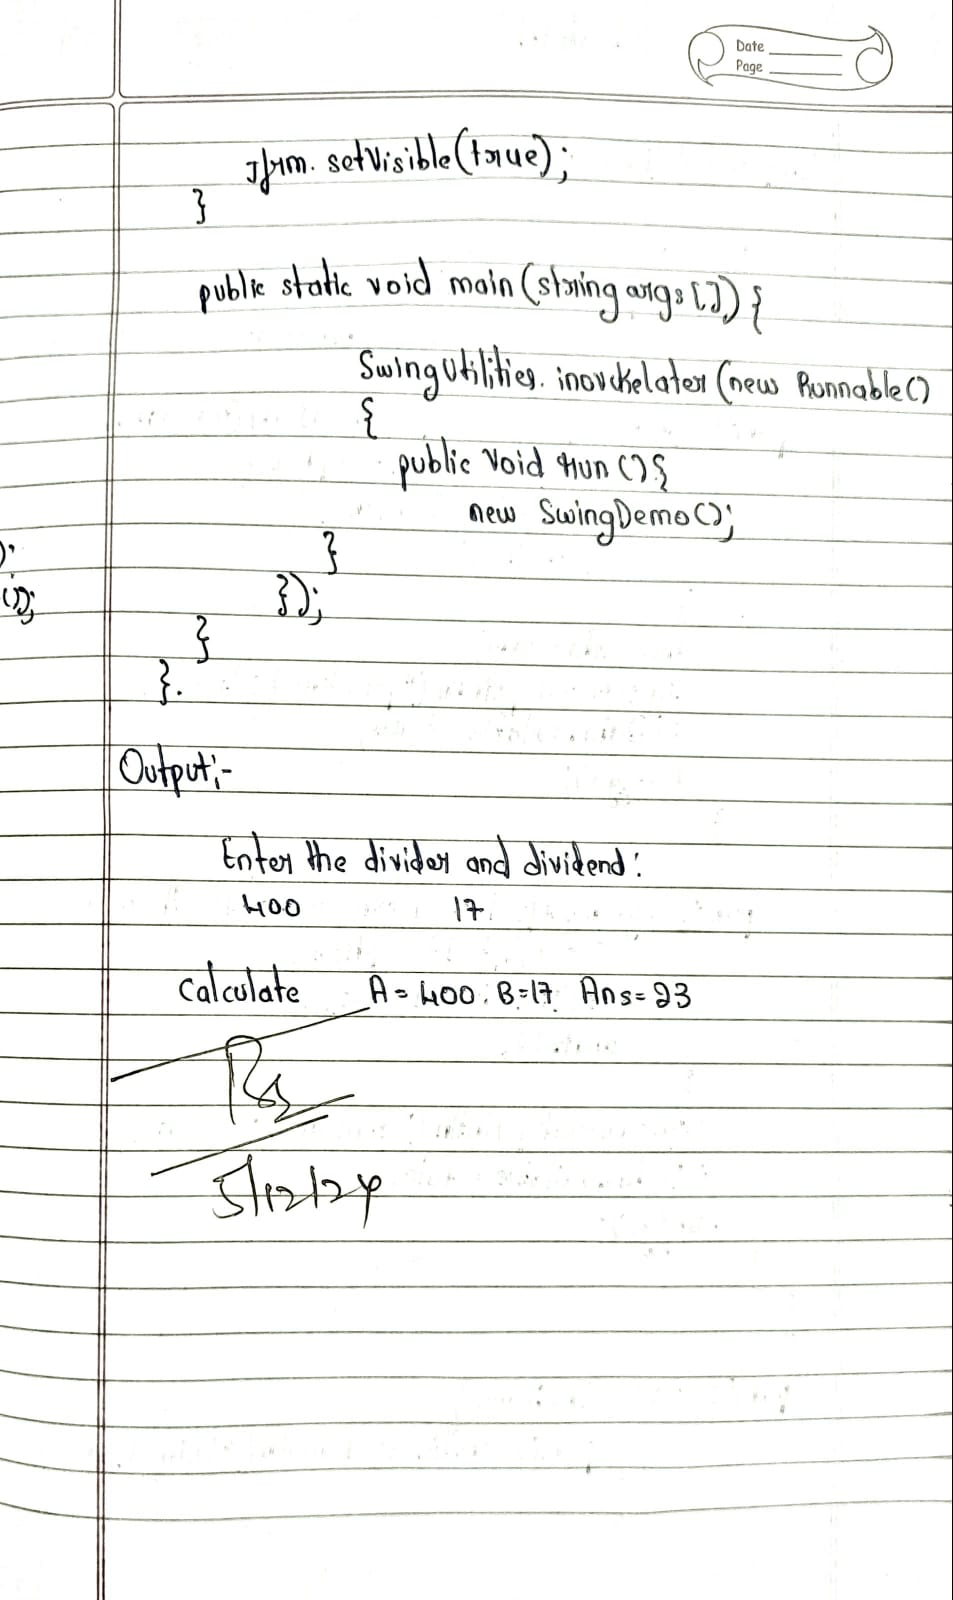 Date
Page
Jfrm. setVisible(true);
}
public static void main (string args []) {
SwingUtilities. inovckelater (new Runnable()
{
public Void run () {
new SwingDemo();
}
);
});
();
}
}.
Output:-
Enter the divider and dividend:
400 17
Calculate A = 400. B=17 Ans= 23
5/12/24